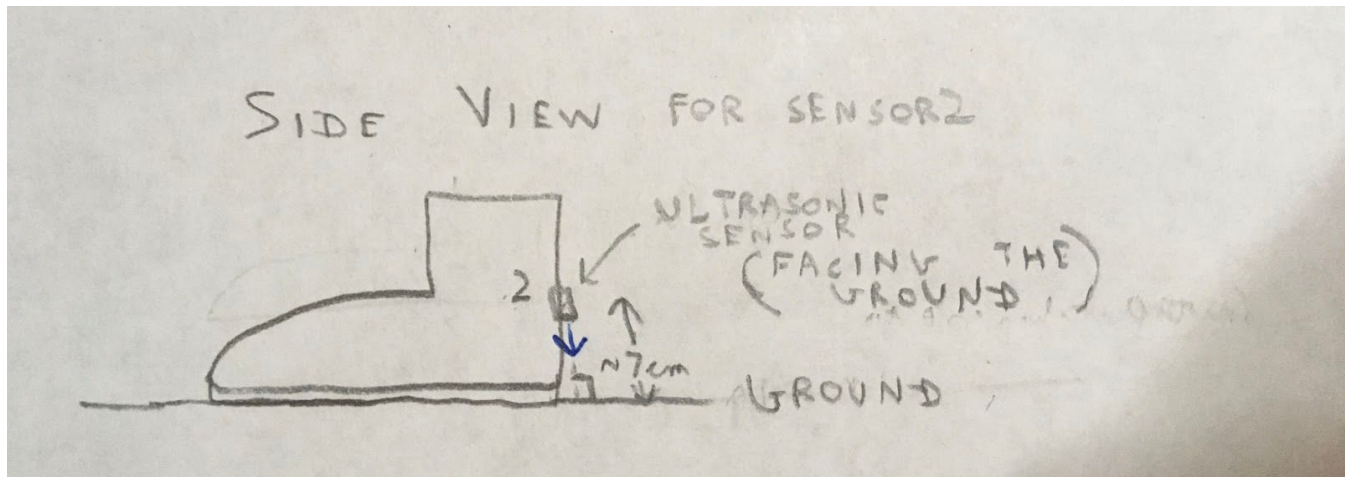 SIDE VIEW FOR SENSOR2
ULTRASONIC
SENSOR
(FACING THE
GROUND)
2
~7cm
GROUND